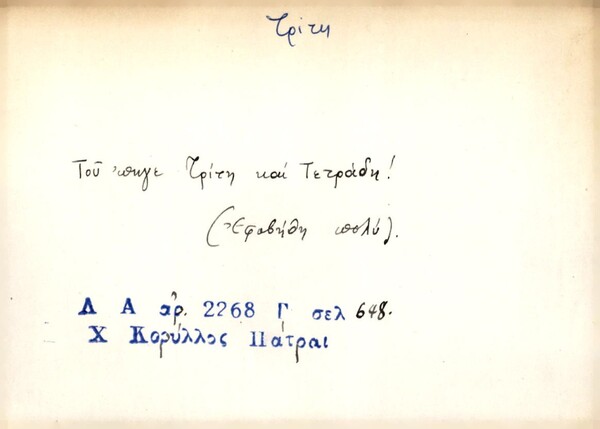 Τρίτη
Τοῦ 'πηγε Τρίτη καί Τετράδη!
(Ἐφοβήθη πολύ).
Λ Α αρ. 2268 Γ σελ 648.
Χ Κορύλλος Πάτραι